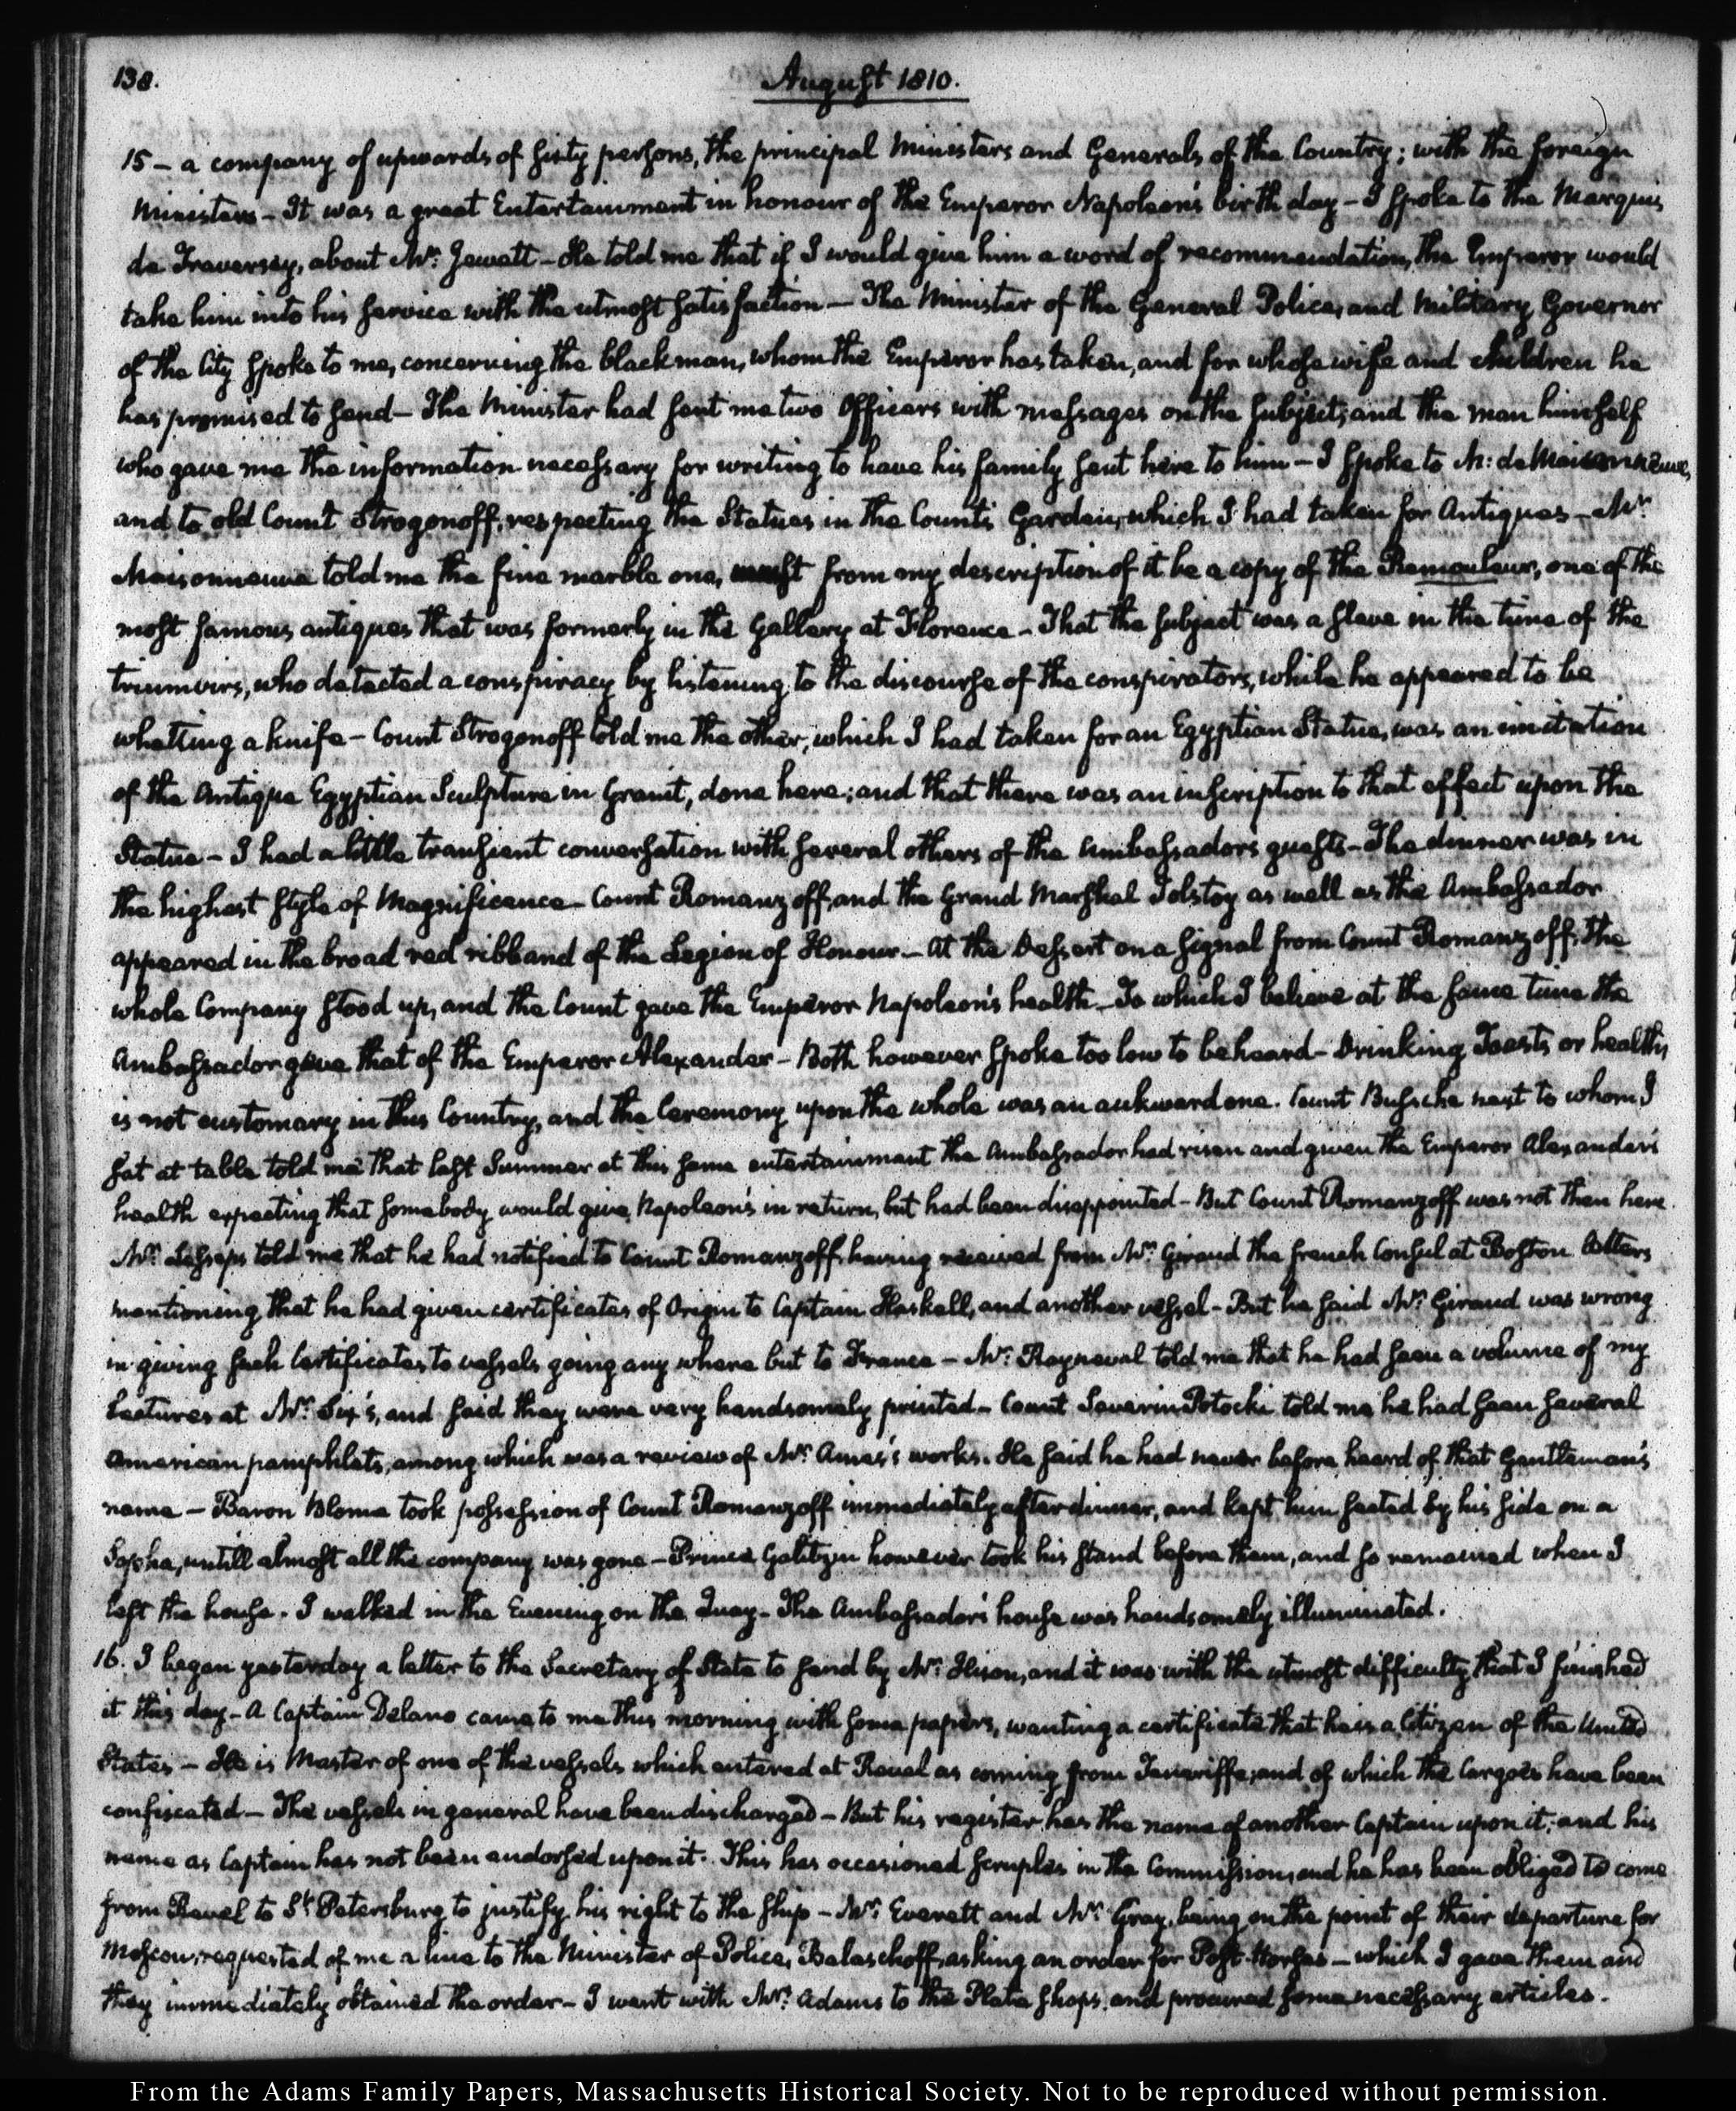 138.
August 1810.
15 — a company of upwards of sixty persons, the principal Ministers and Generals of the Country; with the foreign
Ministers - It was a great Entertainment in honour of the Emperor Napoleon's birth day - I spoke to the Marquis
de Traversay, about Mr. Jewett - He told me that if I would give him a word of recommendation, the Emperor would
take him into his service with the utmost satisfaction — The Minister of the General Police, and Military Governor
of the City spoke to me, concerning the black man, whom the Emperor has taken, and for whose wife and children he
has promised to send - The Minister had sent me two Officers with messages on the subject, and the man himself
who gave me the information necessary for writing to have his family sent here to him - I spoke to M: de Maisonneuve,
and to old Count Strogonoff, respecting the Statues in the Count's Garden, which I had taken for Antiques - Mr.
Maisonneuve told me the fine marble one, must from my description of it be a copy of the Remouleur, one of the
most famous antiques that was formerly in the Gallery at Florence - That the subject was a slave in the time of the
triumvirs, who detected a conspiracy by listening to the discourse of the conspirators, while he appeared to be
whetting a knife - Count Strogonoff told me the other, which I had taken for an Egyptian Statue, was an imitation
of the Antique Egyptian Sculpture in Granit, done here; and that there was an inscription to that effect upon the
Statue - I had a little transient conversation with several others of the Ambassador's guests - The dinner was in
the highest style of Magnificence - Count Romanzoff, and the Grand Marshal Tolstoy as well as the Ambassador
appeared in the broad red ribband of the Legion of Honour - At the Dessert on a signal from Count Romanzoff, the
whole Company stood up, and the Count gave the Emperor Napoleon's health - To which I believe at the same time the
Ambassador gave that of the Emperor Alexander - Both however spoke too low to be heard - Drinking Toasts or healths
is not customary in this Country, and the Ceremony upon the whole was an aukward one. Count Bussche next to whom I
sat at table told me that last Summer at this same entertainment the Ambassador had risen and given the Emperor Alexander's
health expecting that somebody would give Napoleon's in return, but had been disappointed - But Count Romanzoff was not then here.
Mr. Lesseps told me that he had notified to Count Romanzoff, having received from Mr. Giraud the french Consul at Boston letters
mentioning that he had given certificates of Origin to Captain Haskell, and another vessel - But he said Mr. Giraud was wrong
in giving such Certificates to vessels going any where but to France - Mr. Rayneval told me that he had seen a volume of my
Lectures at Mr. Six's, and said they were very handsomely printed - Count Severin Potocki told me he had seen several
American pamphlets, among which was a review of Mr. Ames's works. He said he had never before heard of that Gentleman's
name — Baron Blome took possession of Count Romanzoff immediately after dinner, and kept him seated by his side on a
Sopha, untill almost all the company was gone - Prince Galitzin however took his stand before them, and so remained when I
left the house. I walked in the Evening on the Quay - The Ambassador's house was handsomely illuminated.
16. I began yesterday a letter to the Secretary of State to send by Mr. Ilison, and it was with the utmost difficulty that I finished
it this day - A Captain Delano came to me this morning with some papers, wanting a certificate that he is a Citizen of the United
States - He is Master of one of the vessels which entered at Reval as coming from Teneriffe; and of which the Cargoes have been
confiscated - The vessels in general have been discharged - But his register has the name of another Captain upon it; and his
name as Captain has not been endorsed upon it. This has occasioned scruples in the Commission, and he has been obliged to come
from Revel to St. Petersburg to justify his right to the ship - Mr. Everett and Mr. Gray, being on the point of their departure for
Moscow, requested of me a line to the Minister of Police, Balaschoff, asking an order for Post-Horses - which I gave them and
they immediately obtained the order - I went with Mrs. Adams to the Plate shops, and procured some necessary articles.
From the Adams Family Papers, Massachusetts Historical Society. Not to be reproduced without permission.